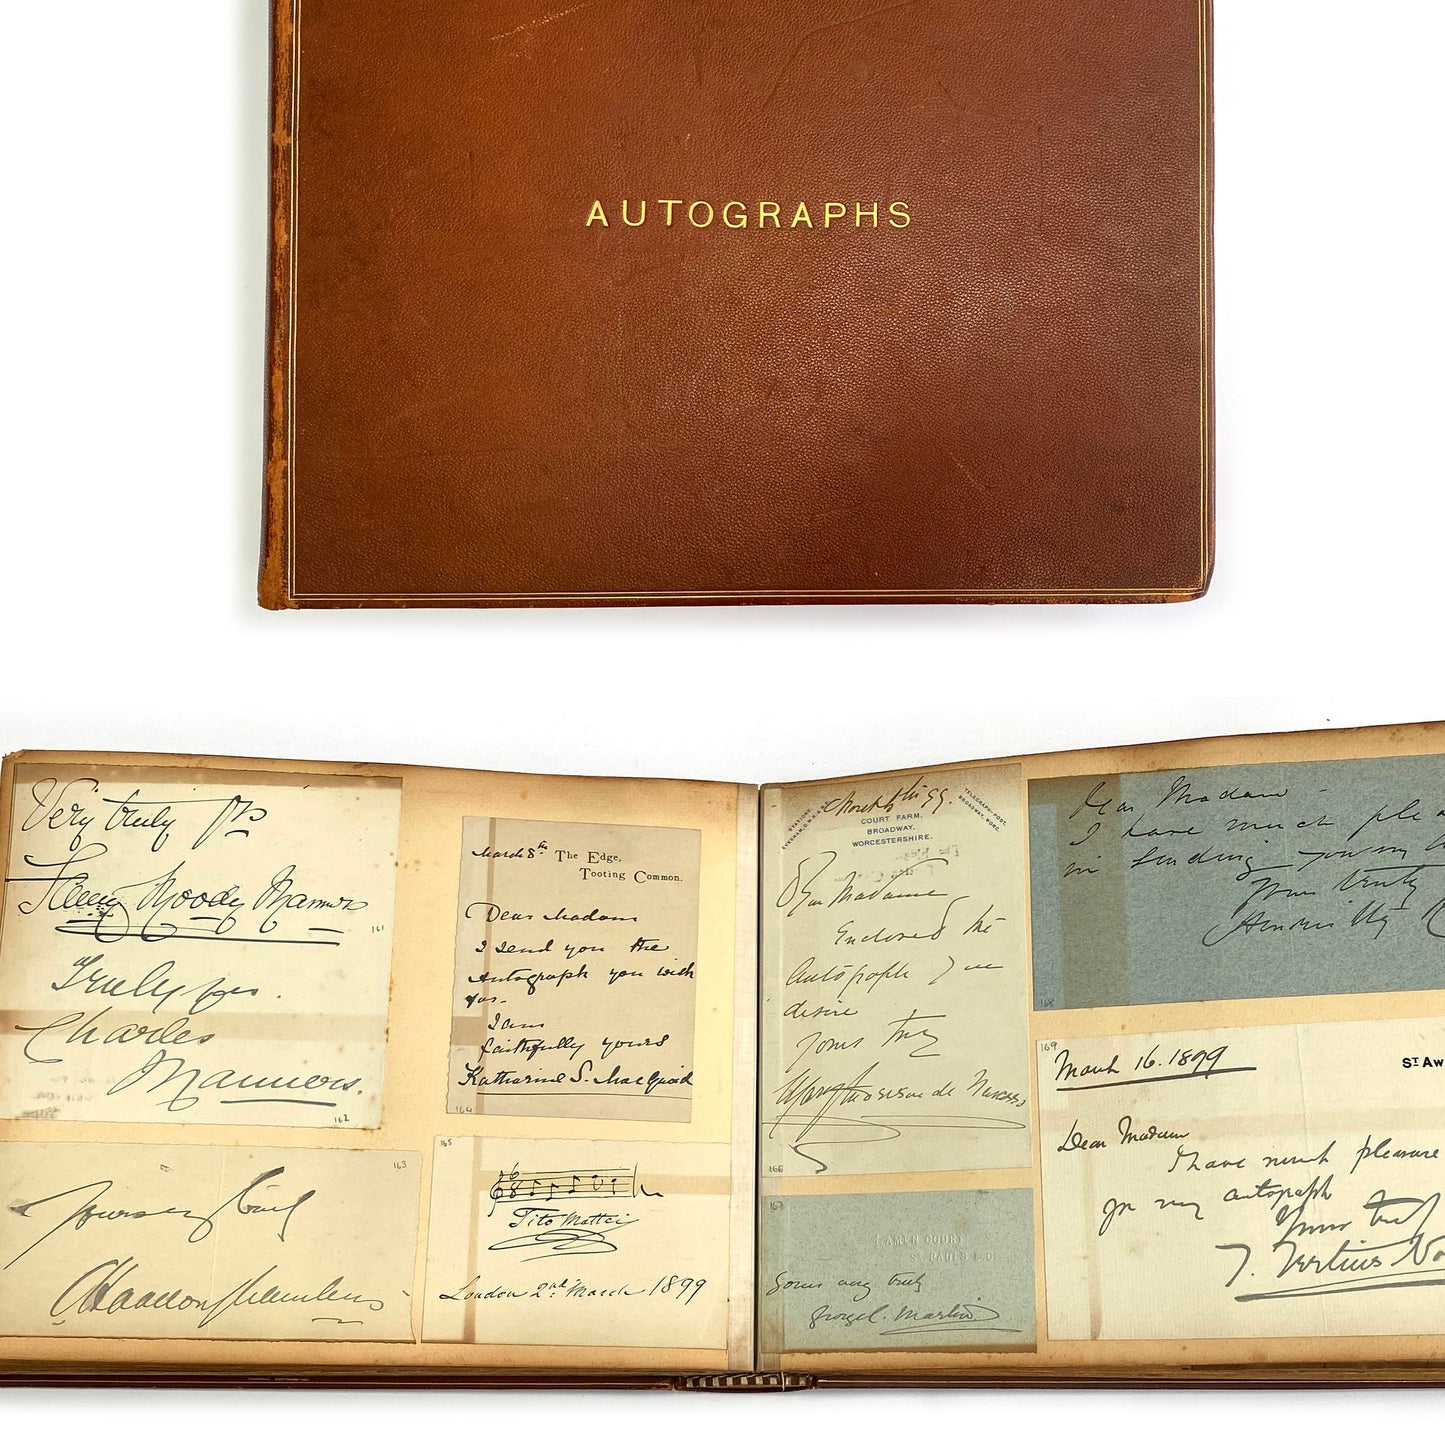 AUTOGRAPHS
Very truly yrs
Fanny Moody Manners
161
Truly yrs.
Charles
Manners.
162
163
Yours very truly
March 8th The Edge,
Tooting Common.
Dear Madam
I send you the
Autograph you wish
for.
I am
faithfully yours
Katharine S. MacQuoid
164
165
6
8
Tito Mattei
London 2nd March 1899
COURT FARM,
BROADWAY,
WORCESTERSHIRE.
TELEGRAPH-POST,
BROADWAY, WORC.
Dear Madame
Enclosed the
autograph you
desire
Yours truly
Mary Anderson de Navarro
166
167
ST PAULS E.C.
Yours very truly
George C. Martin
Dear Madam
I have much plea
in sending you my
Yours truly
168
169
March 16. 1899
ST AW
Dear Madam
I have much pleasure
in my autograph
Yours truly
T. Tertius No